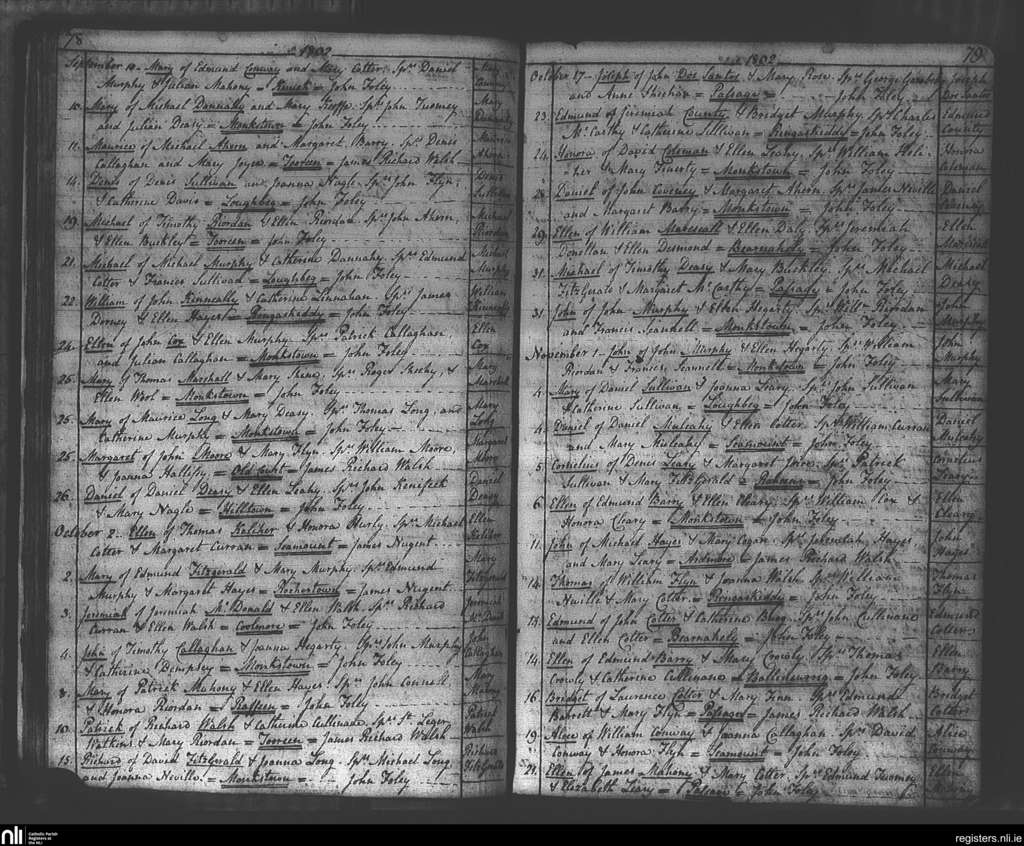 78
1802
September 10. Mary of Edmund Conway and Mary Cotter. Sprs Daniel
Murphy & Julian Mahony = = John Foley
Mary
Conway
10. Mary of Michael Dannahy and Mary Sprs John Twomey
and Julian Deasy = Monkstown = John Foley
Mary
Dannahy
11. Maurice of Michael Ahern and Margaret Barry. Sprs Denis
Callaghan and Mary Joyce = Toreen = James Richard Walsh
Maurice
Ahern
14. Denis of Denis Sullivan and Joanna Nagle. Sprs John Flyn
& Catherine Davis = Loughbeg = John Foley
Denis
Sullivan
19. Michael of Timothy Riordan & Ellen Riordan. Sprs John Ahern,
& Ellen Buckley = Toreen = John Foley
Michael
Riordan
21. Michael of Michael Murphy & Catherine Dannahy. Sprs Edmund
Cotter & Frances Sullivan = Loughbeg = John Foley
Michael
Murphy
22. William of John Kinneally & Catherine Linnahan. Sprs James
Dorney & Ellen Hayes = Ringaskiddy = John Foley
William
Kinneally
24. Ellen of John Cox & Ellen Murphy. Sprs Patrick Callaghan
and Julian Callaghan = Monkstown = John Foley
Ellen
Cox
25. Mary of Thomas Marshall & Mary Sprs Roger Sheehy, &
Ellen = Monkstown = John Foley
Mary
Marshall
25. Mary of Maurice Long & Mary Deasy. Sprs Thomas Long, and
Catherine Murphy = Monkstown = John Foley
Mary
Long
25. Margaret of John Moore & Mary Flyn. Sprs William Moore,
& Joanna Hallisy = Old Court = James Richard Walsh
Margaret
Moore
26. Daniel of Daniel Deasy & Ellen Leahy. Sprs John Kenifeck
& Mary Nagle = Hilltown = John Foley
Daniel
Deasy
October 2. Ellen of Thomas Keliher & Honora Hurly. Sprs Michael
Cotter & Margaret Curran = Seamount = James Nugent
Ellen
Keliher
2. Mary of Edmund Fitzgerald & Mary Murphy. Sprs Edmund
Murphy & Margaret Hayes = Rochestown = James Nugent
Mary
Fitzgerald
3. Jeremiah of Jeremiah McDonald & Ellen Walsh. Sprs Richard
Curran & Ellen Walsh = Coolmore = John Foley
Jeremiah
McDonald
4. John of Timothy Callaghan & Joanna Hegarty. Sprs John Murphy
& Catherine Dempsey = Monkstown = John Foley
John
Callaghan
8. Mary of Patrick Mahony & Ellen Hayes. Sprs John Connell
& Honora Riordan = Raffeen = John Foley
Mary
Mahony
10. Patrick of Richard Walsh & Catherine Cullenane. Sprs St Leger
Watkins & Mary Riordan = Toreen = James Richard Walsh
Patrick
Walsh
15. Richard of David Fitzgerald & Joanna Long. Sprs Michael Long
and Joanna Neville = Monkstown = John Foley
Richard
Fitzgerald
79
1802
October 17. Joseph of John Dos Santos & Mary Rose. Sprs George
and Anne Sheehan = Passage = John Foley
Joseph
Dos Santos
23. Edmund of Jeremiah County & Bridget Murphy. Sprs Charles
McCarthy & Catherine Sullivan = Ringaskiddy = John Foley
Edmund
County
24. Honora of David Coleman & Ellen Leahy. Sprs William
& Mary Finerty = Monkstown = John Foley
Honora
Coleman
Daniel of John & Margaret Ahern. Sprs James Neville
and Margaret Barry = Monkstown = John Foley
Daniel
29. Ellen of William & Ellen Daly. Sprs Jeremiah
Donellan & Ellen Desmond = Barnahely = John Foley
Ellen
31. Michael of Timothy Deasy & Mary Buckley. Sprs Michael
FitzGerald & Margaret McCarthy = Passage = John Foley
Michael
Deasy
31. John of John Murphy & Ellen Hegarty. Sprs Willm Riordan
and Frances Scannell = Monkstown = John Foley
John
Murphy
November 1. John of John Murphy & Ellen Hegarty. Sprs William
Riordan & Frances Scannell = Monkstown = John Foley
John
Murphy
4. Mary of Daniel Sullivan & Joanna Leary. Sprs John Sullivan
& Catherine Sullivan = Loughbeg = John Foley
Mary
Sullivan
4. Daniel of Daniel Mulcahy & Ellen Cotter. Sprs William Curran
and Mary Mulcahy = Seamount = John Foley
Daniel
Mulcahy
5. Cornelius of Denis Leary & Margaret Joyce. Sprs Patrick
Sullivan & Mary FitzGerald = = John Foley
Cornelius
Leary
6. Ellen of Edmund Barry & Ellen Cleary. Sprs William Cox &
Honora Cleary = Monkstown = John Foley
Ellen
Cleary
11. John of Michael Hayes & Mary Cogan. Sprs Jeremiah Hayes
and Mary Leary = Ardmore = James Richard Walsh
John
Hayes
14. Thomas of William Flyn & Joanna Walsh. Sprs William
Neville & Mary Cotter = Ringaskiddy = John Foley
Thomas
Flyn
13. Edmund of John Cotter & Catherine Sprs John Cullinane
and Ellen Cotter = Barnahely = John Foley
Edmund
Cotter
14. Ellen of Edmund Barry & Mary Crowly. Sprs Thomas
Crowly & Catherine Cullenane = = John Foley
Ellen
Barry
16. Bridget of Lawrence Cotter & Mary Finn. Sprs Edmund
Barrett & Mary Flyn = Passage = James Richard Walsh
Bridget
Cotter
19. Alice of William Conway & Joanna Callaghan. Sprs David
Conway & Honora Flyn = Seamount = John Foley
Alice
Conway
21. Ellen of James Mahony & Mary Cotter. Sprs Edmund Twomey
& Elizabeth Leary = Passage = John Foley
Ellen
Mahony
nli
Catholic Parish
Registers at
the NLI
registers.nli.ie